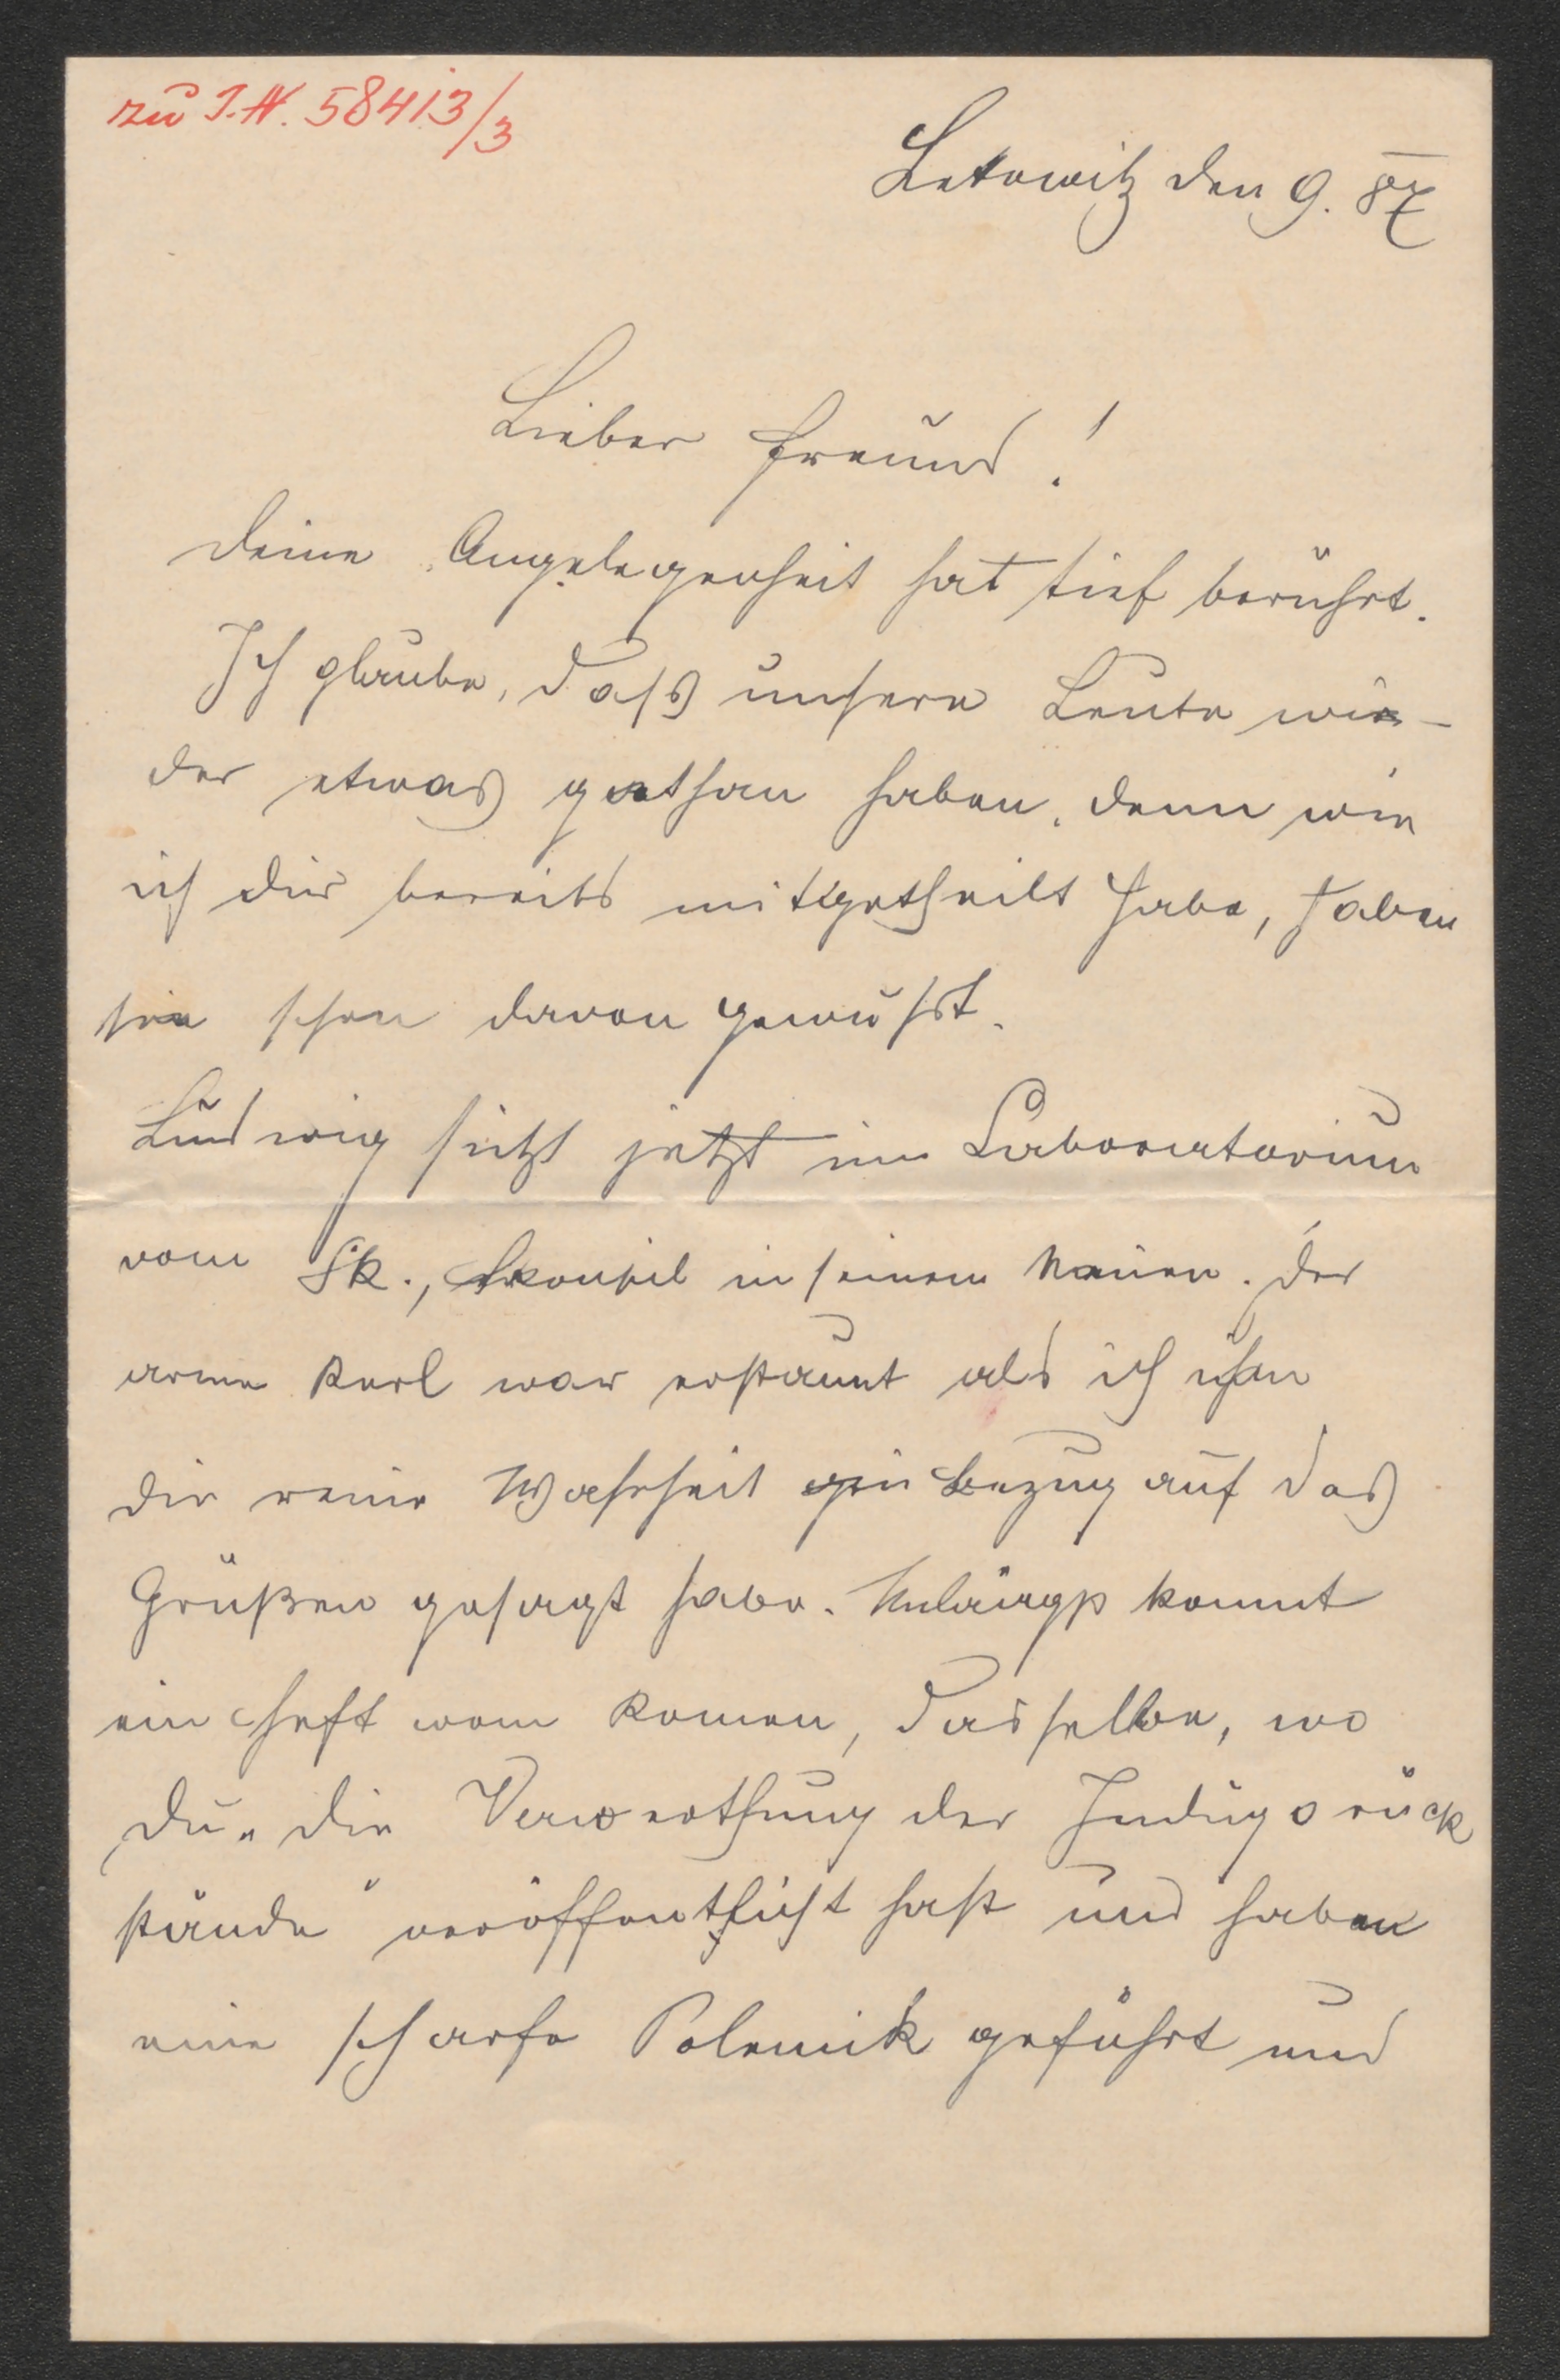 zu I.N. 58413/3
Letowitz den 9. 87
Lieber Freund!
Deine Angelegenheit hat tief berührt.
Ich glaube, daß unsere Leute wie-
der etwas gethan haben, denn wie
ich dir bereits mitgetheilt habe, haben
sie schon davon gewußt.
Ludwig sitzt jetzt im Laboratorium
vom Sk., Skoupil in seinem Neuen. Der
arme Kerl war erstaunt als ich ihm
die reine Wahrheit in Bezug auf das
Grüßen gesagt habe. Unlängst kommt
ein Heft vom Komen, dasselbe, wo
Du „die Verwerthung der Indigorück
stände" veröffentlicht hast und haben
eine scharfe Polemik geführt und